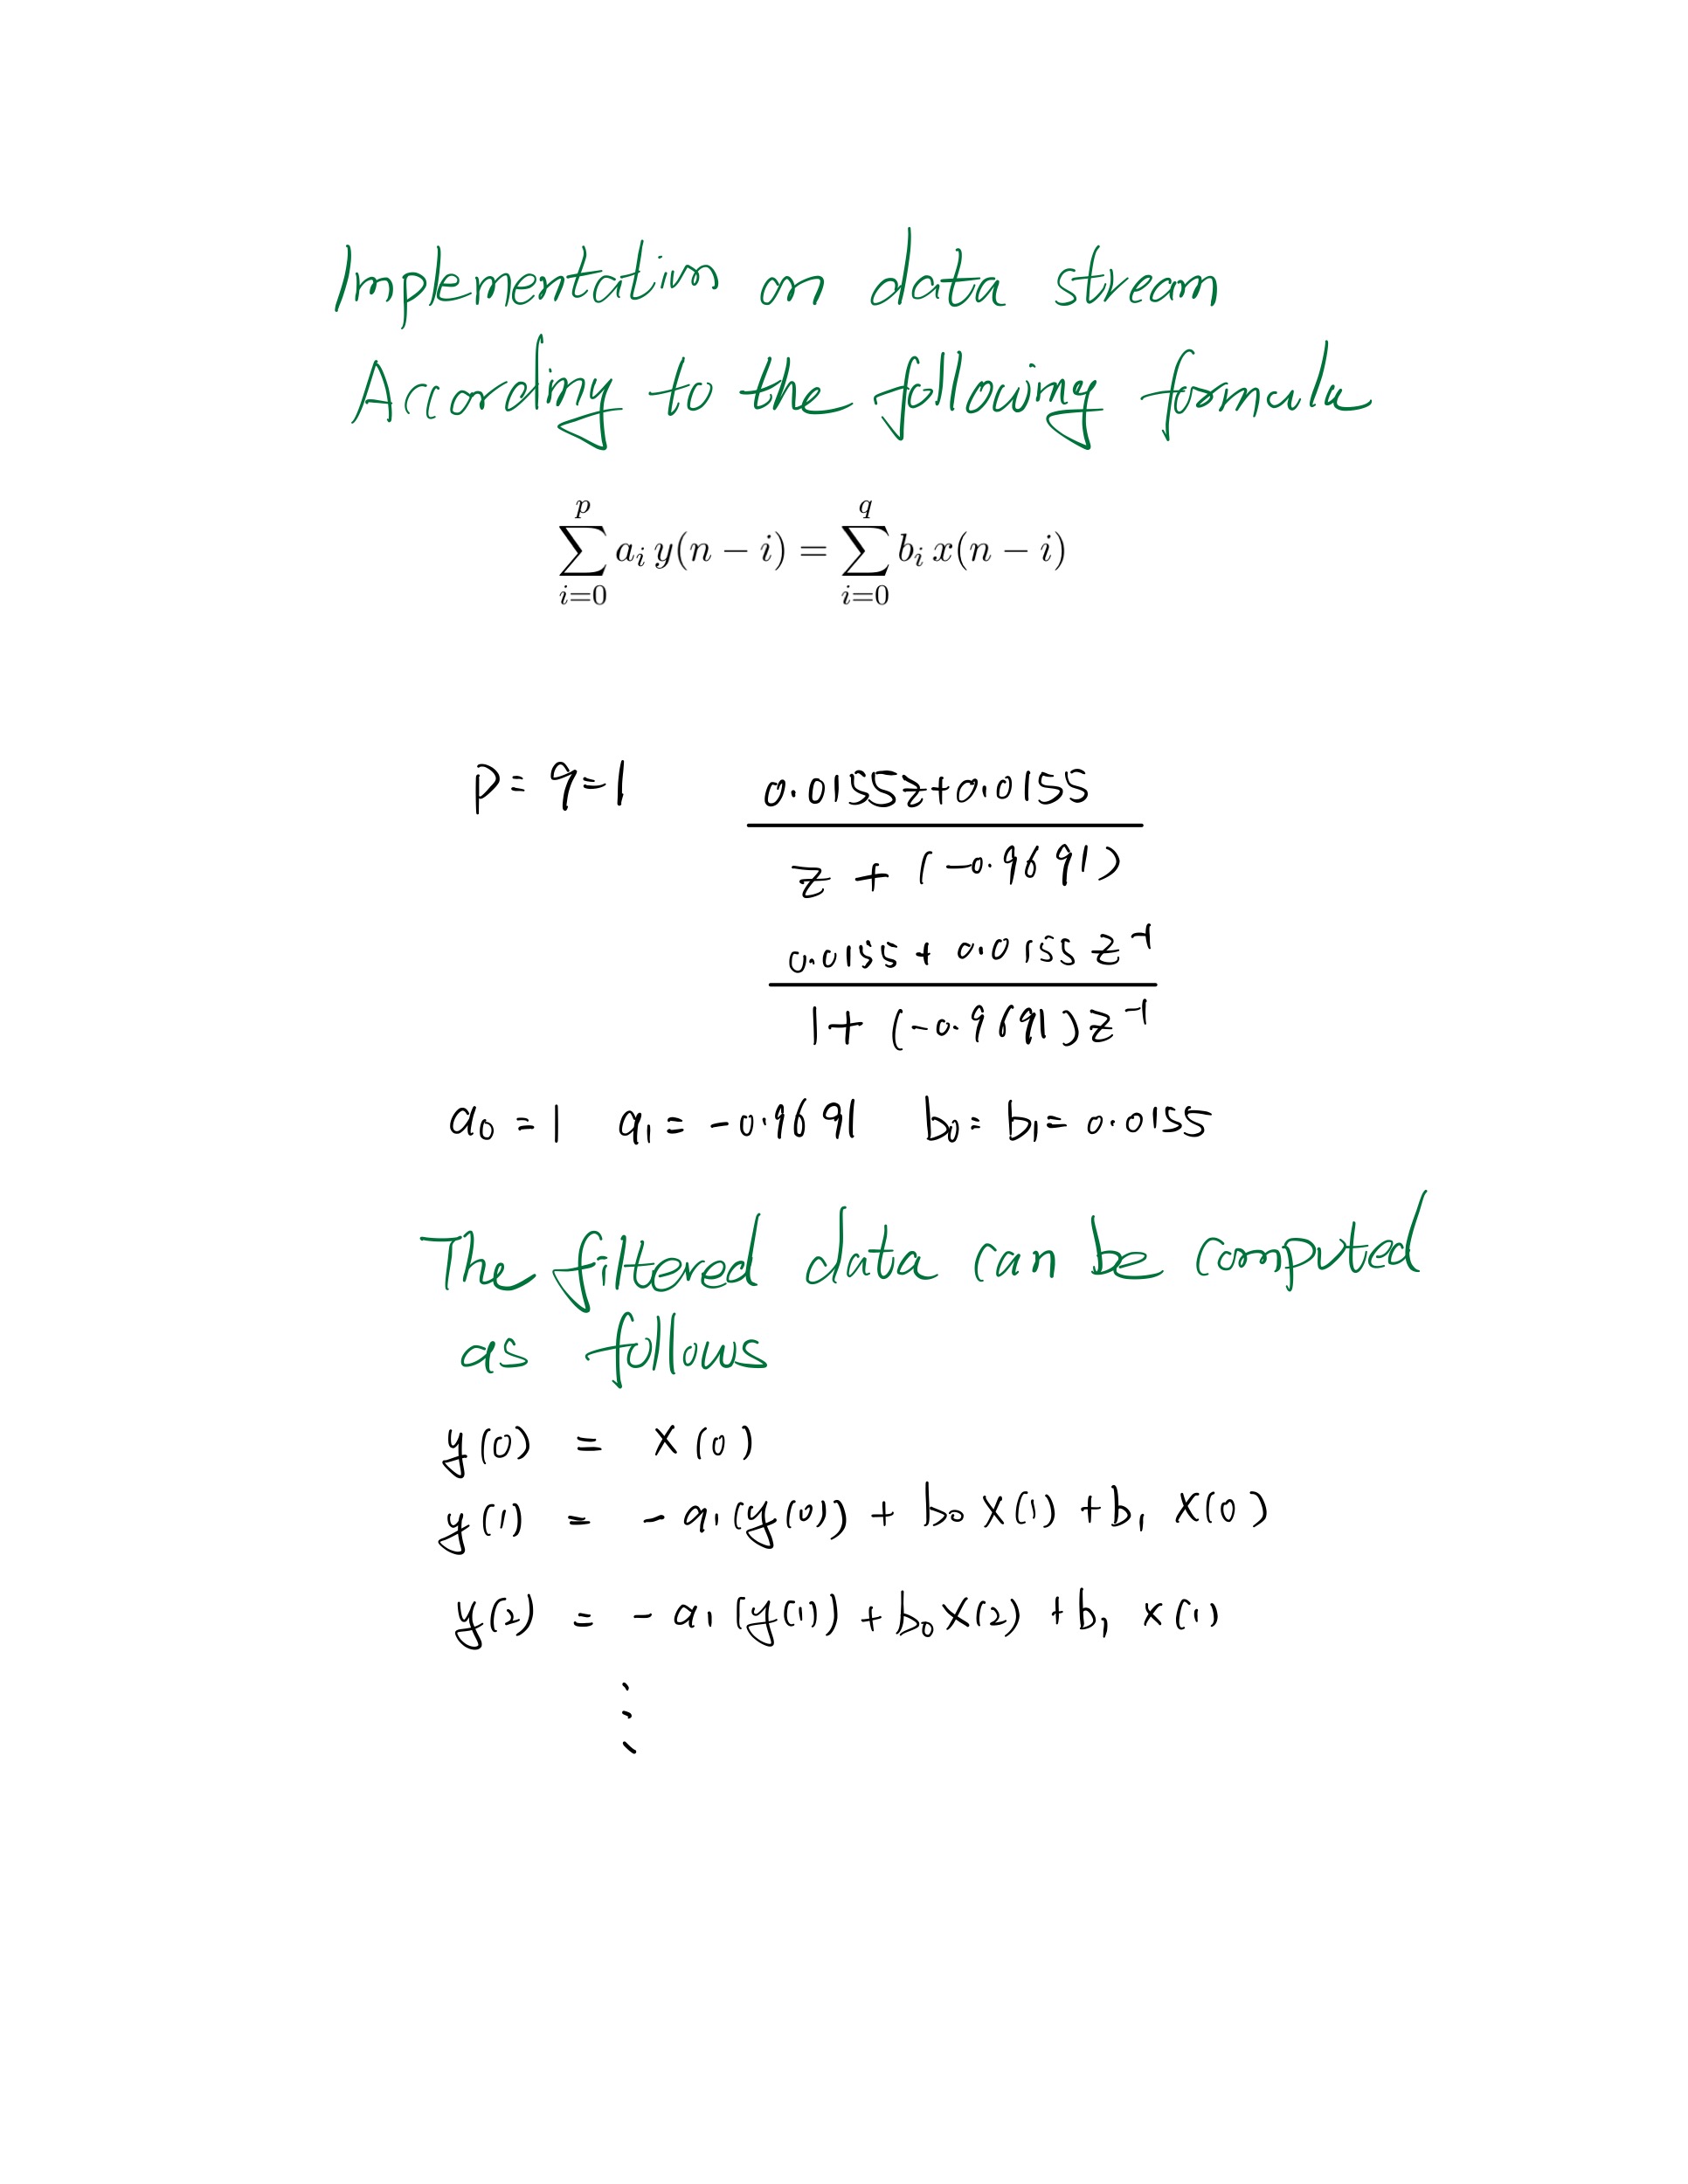 Implementation on data stream
According to the following formula
\sum_{i=0}^{p} a_i y(n - i) = \sum_{i=0}^{q} b_i x(n - i)
p = q = 1
\frac{0.0155z+0.0155}{z + (-0.9691)}
\frac{0.0155 + 0.0155 z^{-1}}{1 + (-0.9691) z^{-1}}
a_0 = 1 a_1 = -0.9691 b_0 = b_1 = 0.0155
The filtered data can be computed
as follows
y(0) = x(0)
y(1) = - a_1 (y(0)) + b_0 x(1) + b_1 x(0)
y(2) = - a_1 (y(1)) + b_0 x(2) + b_1 x(1)
⋮